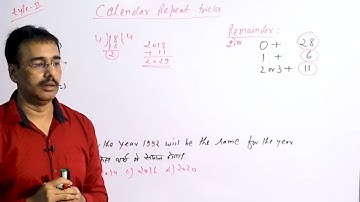 Type-II
Calendar Repeat tricks
4)18(4
16
2
2018
+ 11
2029
Remainder:
शेष
0 + 28
1 + 6
2 or 3 + 11
the year 1992 will be the same for the year
के समान होगा?
c) 2016 d) 2020